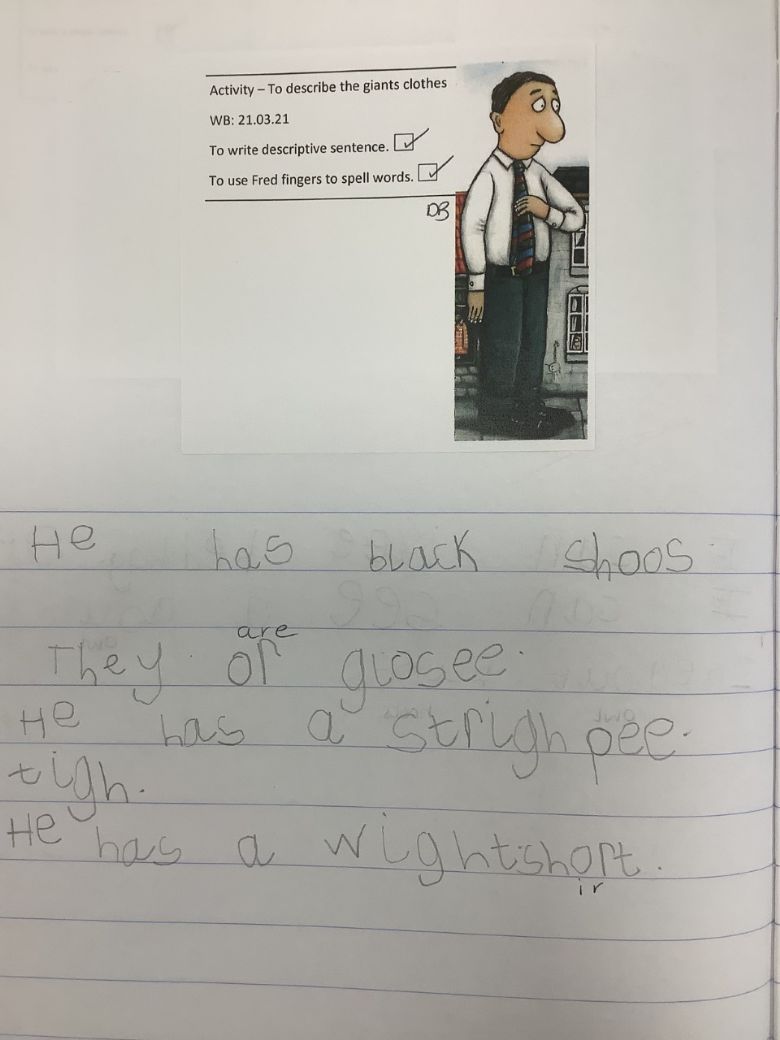 Activity – To describe the giants clothes
WB: 21.03.21
To write descriptive sentence.
To use Fred fingers to spell words.
DB
He has black shoos
are
They or glosee.
He has a strighpee.
tigh.
He has a wightshort.
ir